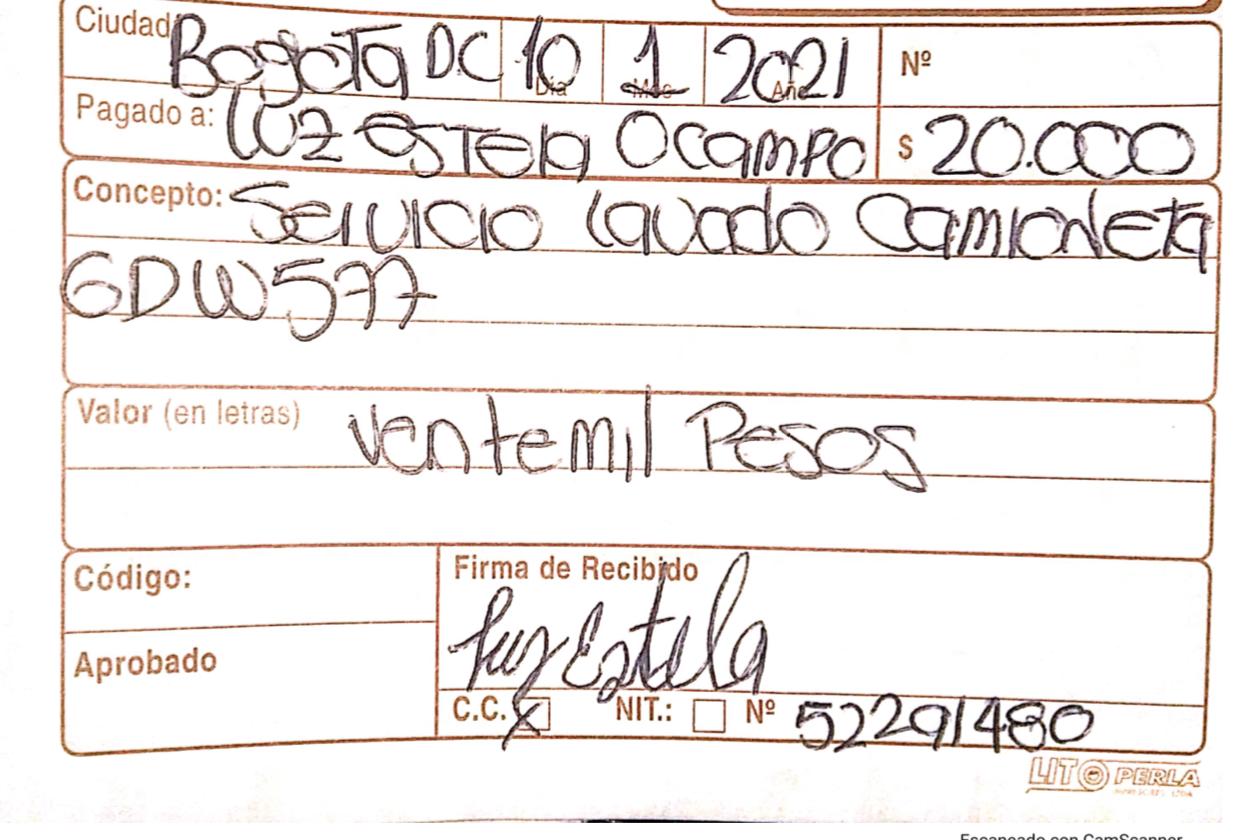 Ciudad Bogota DC 10 1 2021 Nº
Día Mes Año
Pagado a: Luz estela Ocampo $ 20.000
Concepto: Servicio lavado Camioneta
GDW577
Valor (en letras) ventemil Pesos
Código: Firma de Recibido
Luz Estela
Aprobado
C.C. X NIT.: Nº 52291480
LITOPERLA
Escaneado con CamScanner